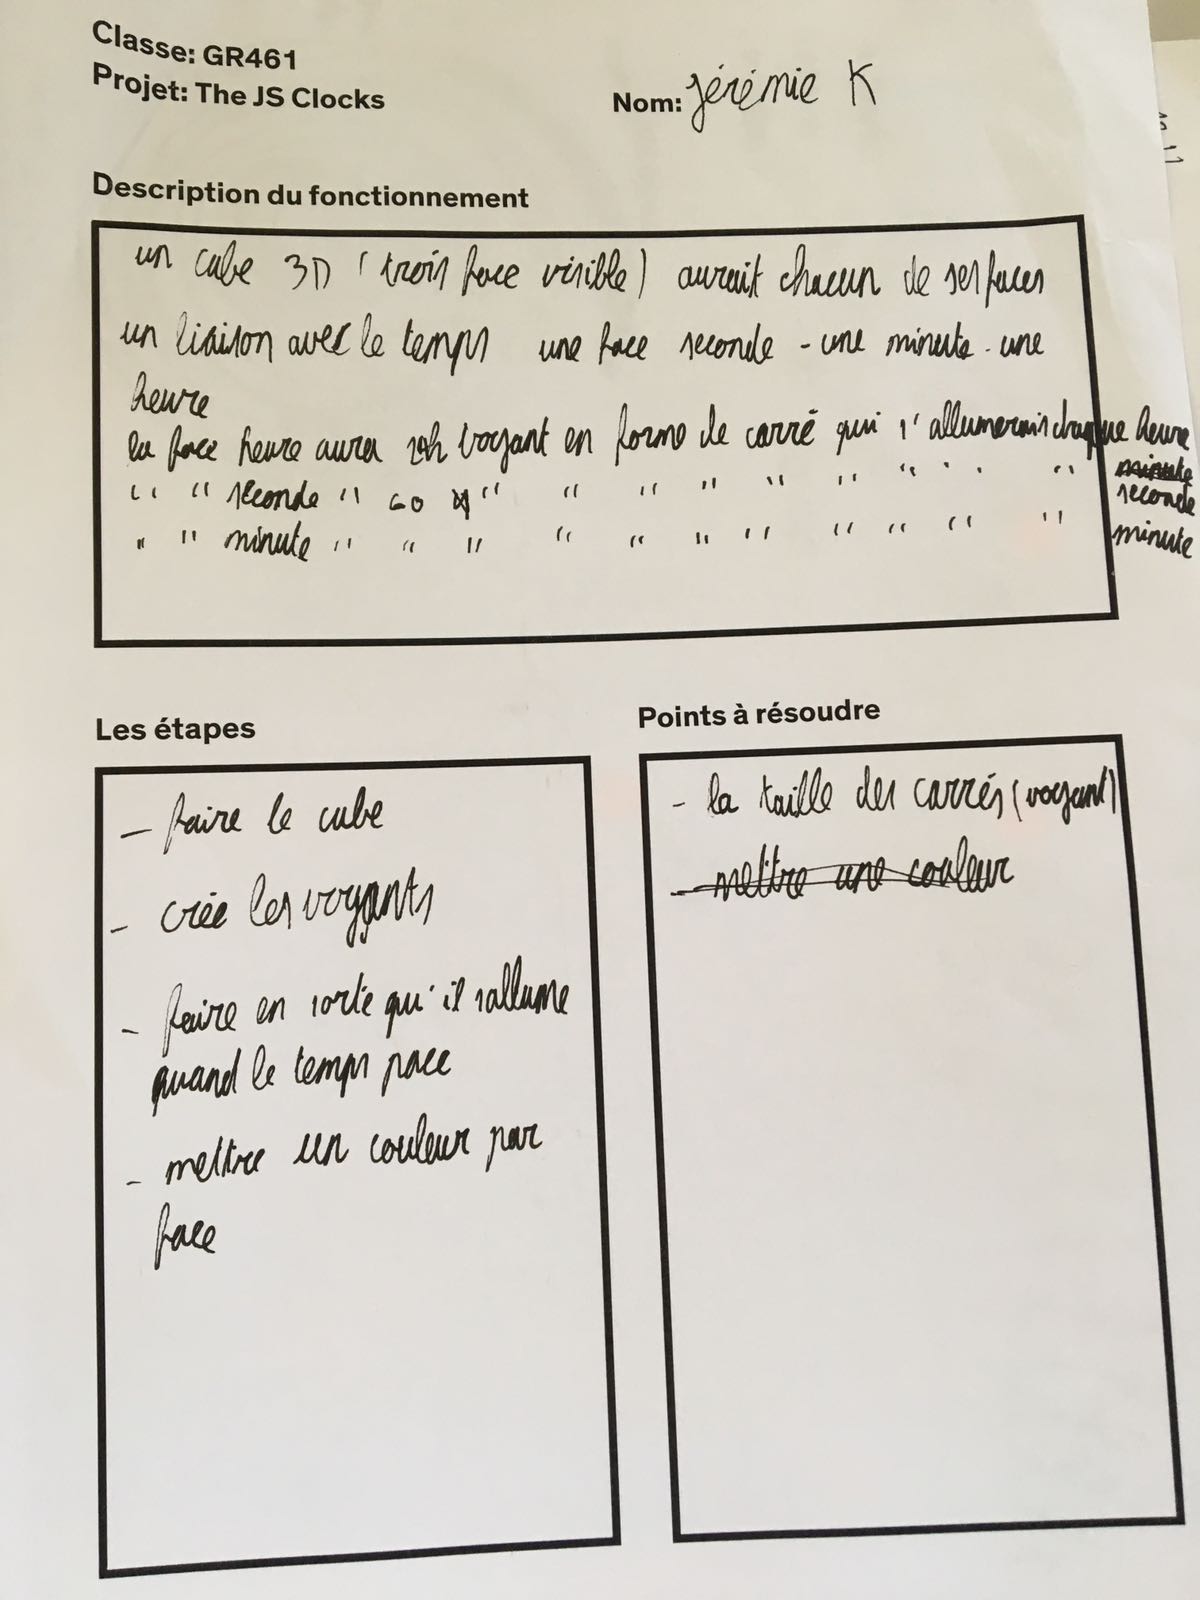 Classe: GR461
Projet: The JS Clocks
Nom: Jérémie K
Description du fonctionnement
un cube 3D (trois face visible) aurait chacun de ses faces
un liaison avec le temps une face seconde - une minute - une
heure
la face heure aura voyant en forme de carré qui s'allumerais chaque heure
" " seconde " 60 " " " " " " " " " " minute
seconde
" " minute " " " " " " " " " " " " minute
Les étapes
- faire le cube
- crée les voyants
- faire en sorte qu'il sallume
quand le temps pace
- mettre un couleur par
face
Points à résoudre
- la taille des carrés (voyant)
- mettre une couleur